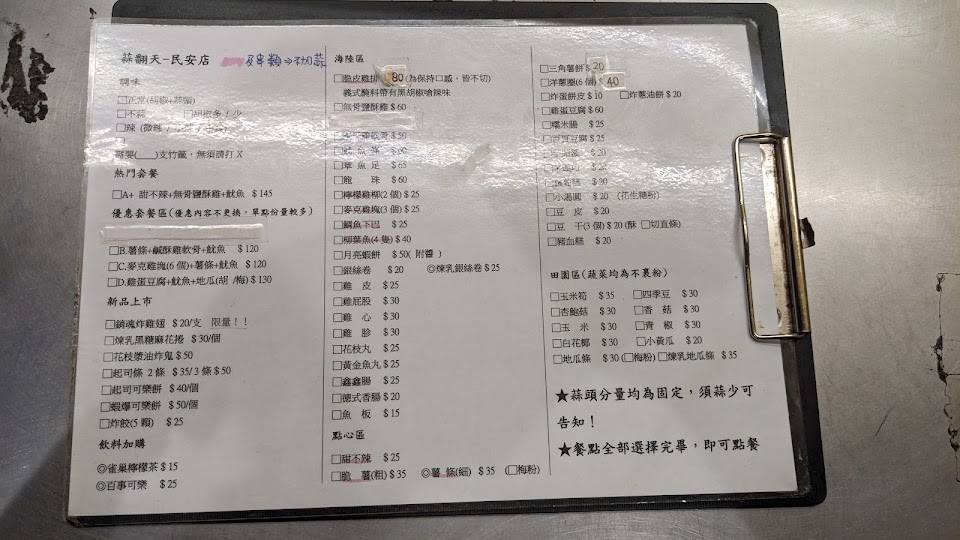 蒜翻天-民安店 豆串類⇒不加蒜
調味
□正常(胡椒+蒜頭)
□不蒜 □胡椒多 / 少
□辣 (微辣
需要(____)支竹籤，無須請打 X
熱門套餐
□A+ 甜不辣+無骨鹽酥雞+魷魚 $145
優惠套餐區(優惠內容不更換，單點份量較多)
□B.薯條+鹹酥雞軟骨+魷魚 $120
□C.麥克雞塊(6個)+薯條+魷魚 $120
□D.雞蛋豆腐+魷魚+地瓜(胡 /梅) $130
新品上市
□銷魂炸雞翅 $20/支 限量！！
□煉乳黑糖麻花捲 $30/個
□花枝漿油炸鬼 $50
□起司條 2 條 $35/ 3 條 $50
□起司可樂餅 $40/個
□蝦爆可樂餅 $50/個
□炸餃(5 顆) $25
飲料加購
◎雀巢檸檬茶 $15
◎百事可樂 $25
海陸區
□脆皮雞排 80 (為保持口感，皆不切)
義式醃料帶有黑胡椒嗆辣味
□無骨鹽酥雞 $60
軟骨 $50
$60
□章魚足 $65
□龍 珠 $60
□檸檬雞柳(2 個) $25
□麥克雞塊(3 個) $25
□鯛魚下巴 $25
□柳葉魚(4 隻) $40
□月亮蝦餅 $50( 附醬 )
□銀絲卷 $20 ◎煉乳銀絲卷 $25
□雞 皮 $25
□雞屁股 $30
□雞 心 $30
□雞 胗 $30
□花枝丸 $25
□黃金魚丸 $25
□鑫鑫腸 $25
□德式香腸 $20
□魚 板 $15
點心區
□甜不辣 $25
□脆 薯(粗) $35 ◎薯 條(細) $35 (□梅粉)
□三角薯餅 $20
□洋蔥圈(6 個) 40
□炸蛋餅皮 $10 □炸蔥油餅 $20
□雞蛋豆腐 $60
□糯米腸 $25
□百頁豆腐 $25
$20
$20
$20
□小湯圓 $20 (花生糖粉)
□豆 皮 $20
□豆 干(3 個) $20 (酥 □切直條)
□豬血糕 $20
田園區(蔬菜均為不裹粉)
□玉米筍 $35 □四季豆 $30
□杏鮑菇 $30 □香 菇 $30
□玉 米 $30 □青 椒 $30
□白花椰 $30 □小黃瓜 $20
□地瓜條 $30 (□梅粉) □煉乳地瓜條 $35
★蒜頭分量均為固定，須蒜少可
告知！
★餐點全部選擇完畢，即可點餐